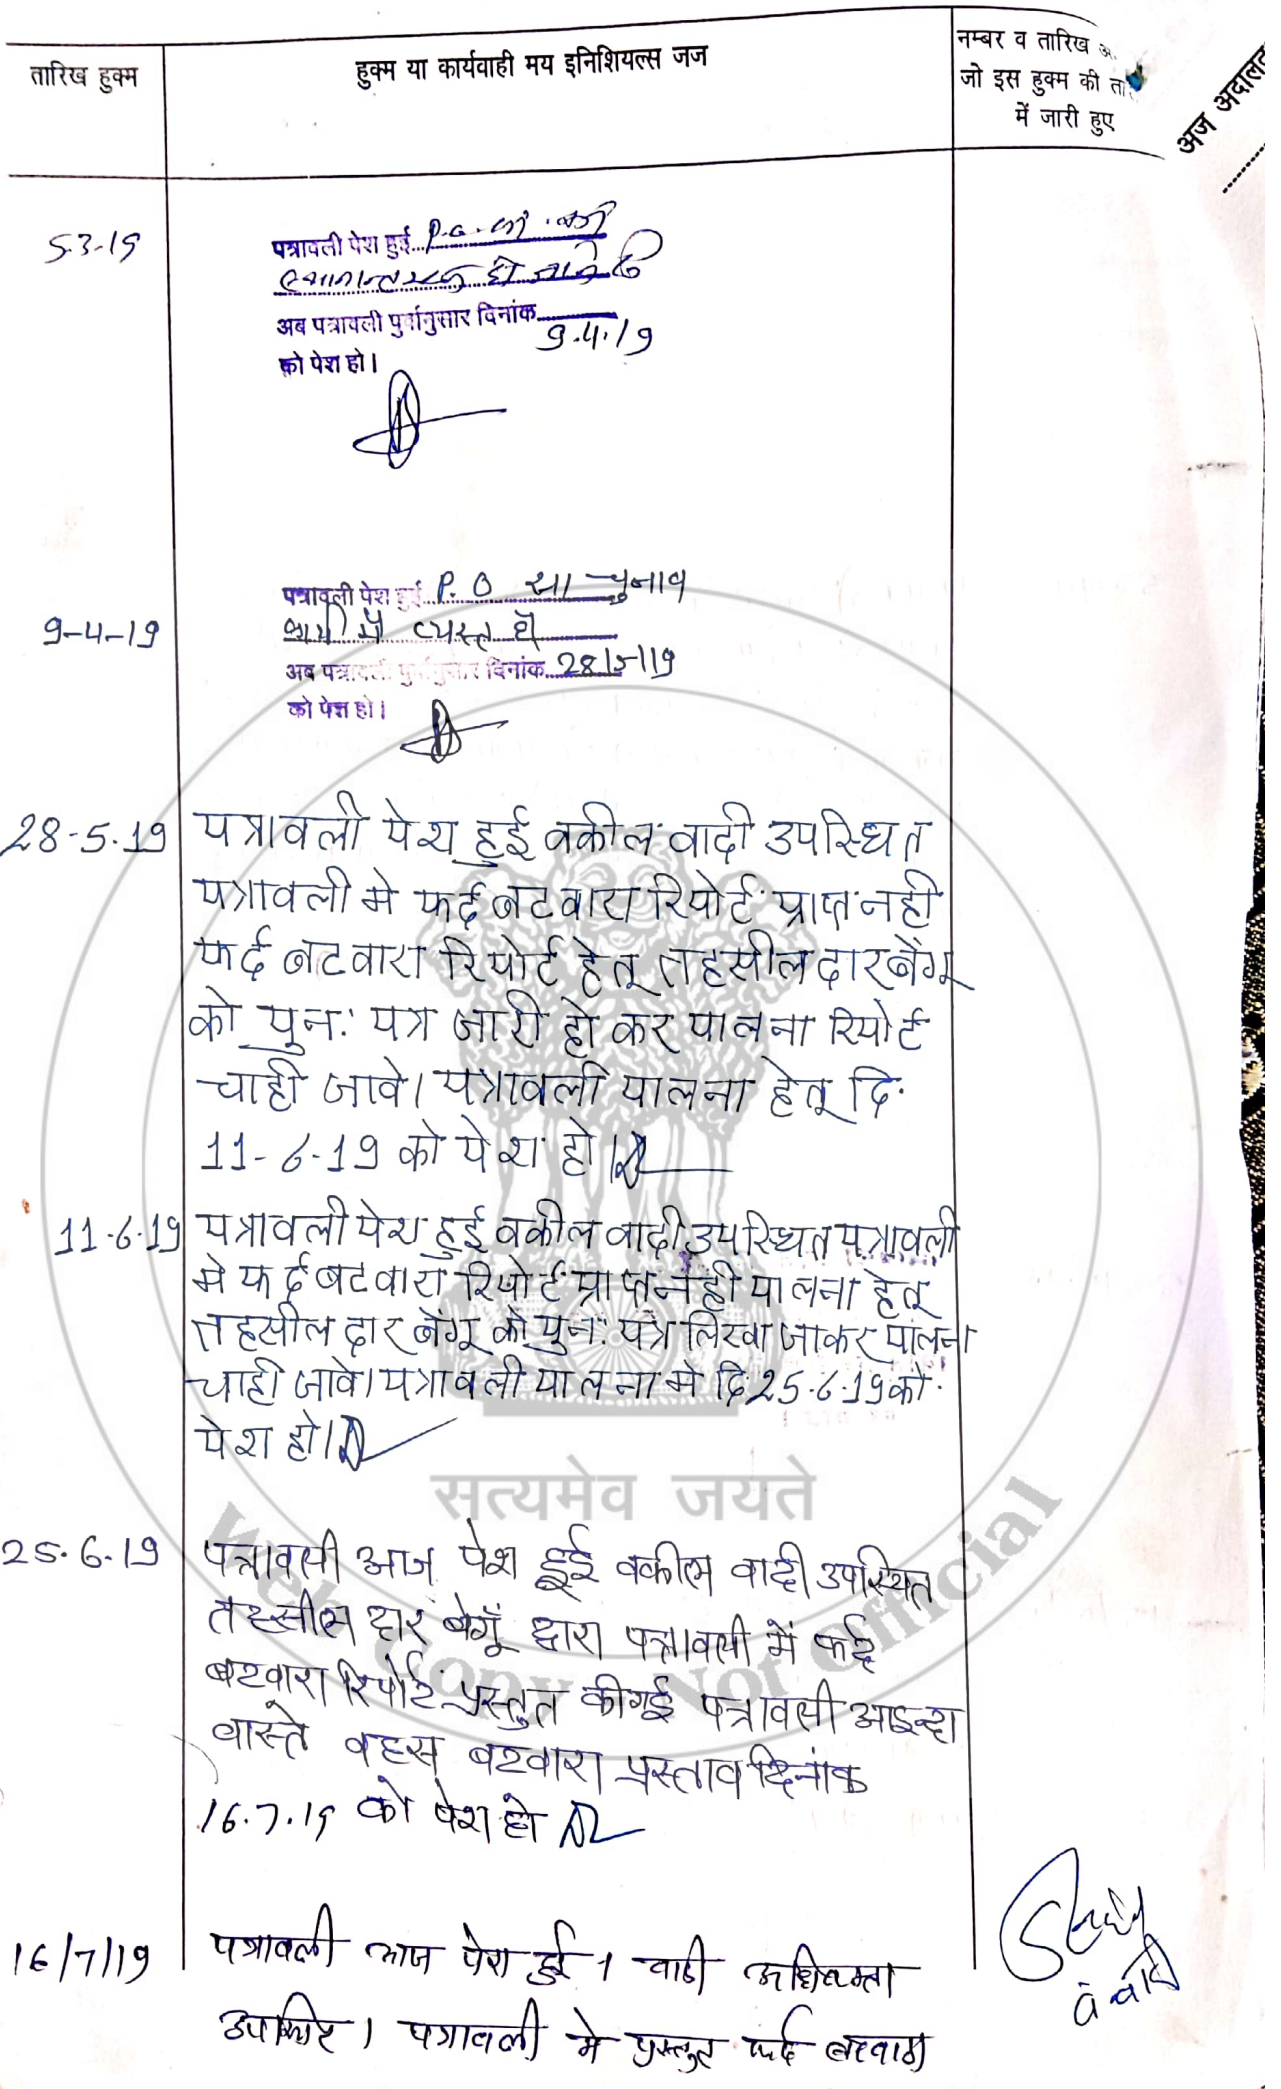 तारिख हुक्म
हुक्म या कार्यवाही मय इनिशियल्स जज
नम्बर व तारिख
जो इस हुक्म की
में जारी हुए
अज अदालत
5-3-19
पत्रावली पेश हुई P.O. सा. का
स्थानान्तरण हो जाने से
अब पत्रावली पुर्वानुसार दिनांक
9.4.19
को पेश हो।
9-4-19
पत्रावली पेश हुई P.O सा चुनाव
कार्य में व्यस्त है
अब पत्रावली पुर्वानुसार दिनांक 28/5/19
को पेश हो।
28-5.19 पत्रावली पेश हुई वकील वादी उपस्थित
पत्रावली मे फर्द बटवारा रिपोर्ट प्राप्त नही
फर्द बटवारा रिपोर्ट हेतू तहसीलदार बेंगू
को पुनः पत्र जारी हो कर पालना रिपोर्ट
चाही जावे। पत्रावली पालना हेतू दि.
11-6-19 को पेश हो।
11-6-19 पत्रावली पेश हुई वकील वादी उपस्थित पत्रावली
मे फर्द बटवारा रिपोर्ट प्राप्त नही पालना हेतू
तहसीलदार बेंगू को पुनः पत्र लिखा जाकर पालना
चाही जावे। पत्रावली पालना मे दि 25.6.19 को
पेश हो।
सत्यमेव जयते
25.6.19 पत्रावली आज पेश हुई वकील वादी उपस्थित
तहसीलदार बेगूँ द्वारा पत्रावली में फर्द
बटवारा रिपोर्ट प्रस्तुत की गई पत्रावली आइन्दा
वास्ते बहस बटवारा प्रस्ताव दिनांक
16.7.19 को पेश हो
Web Copy Not Official
16/7/19 पत्रावली आज पेश हुई। वादी अधिवक्ता
उपस्थित। पत्रावली मे प्रस्तुत फर्द बटवारा